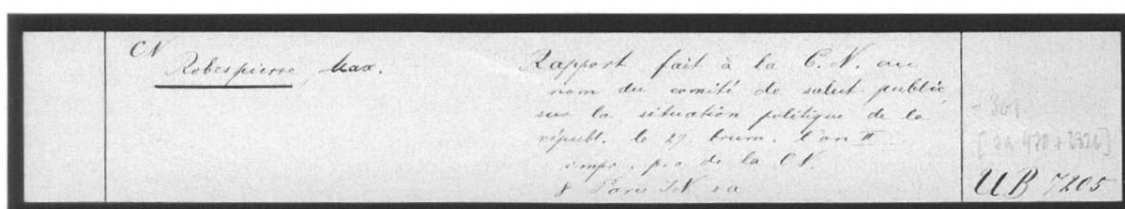 CN
Robespierre, Max.
Rapport fait à la C.N. au
nom du comité de salut public,
sur la situation politique de la
républ. le 27 brum. l'an II.
impr. p.o de la CN.
8 Paris IN s a
UB 7205